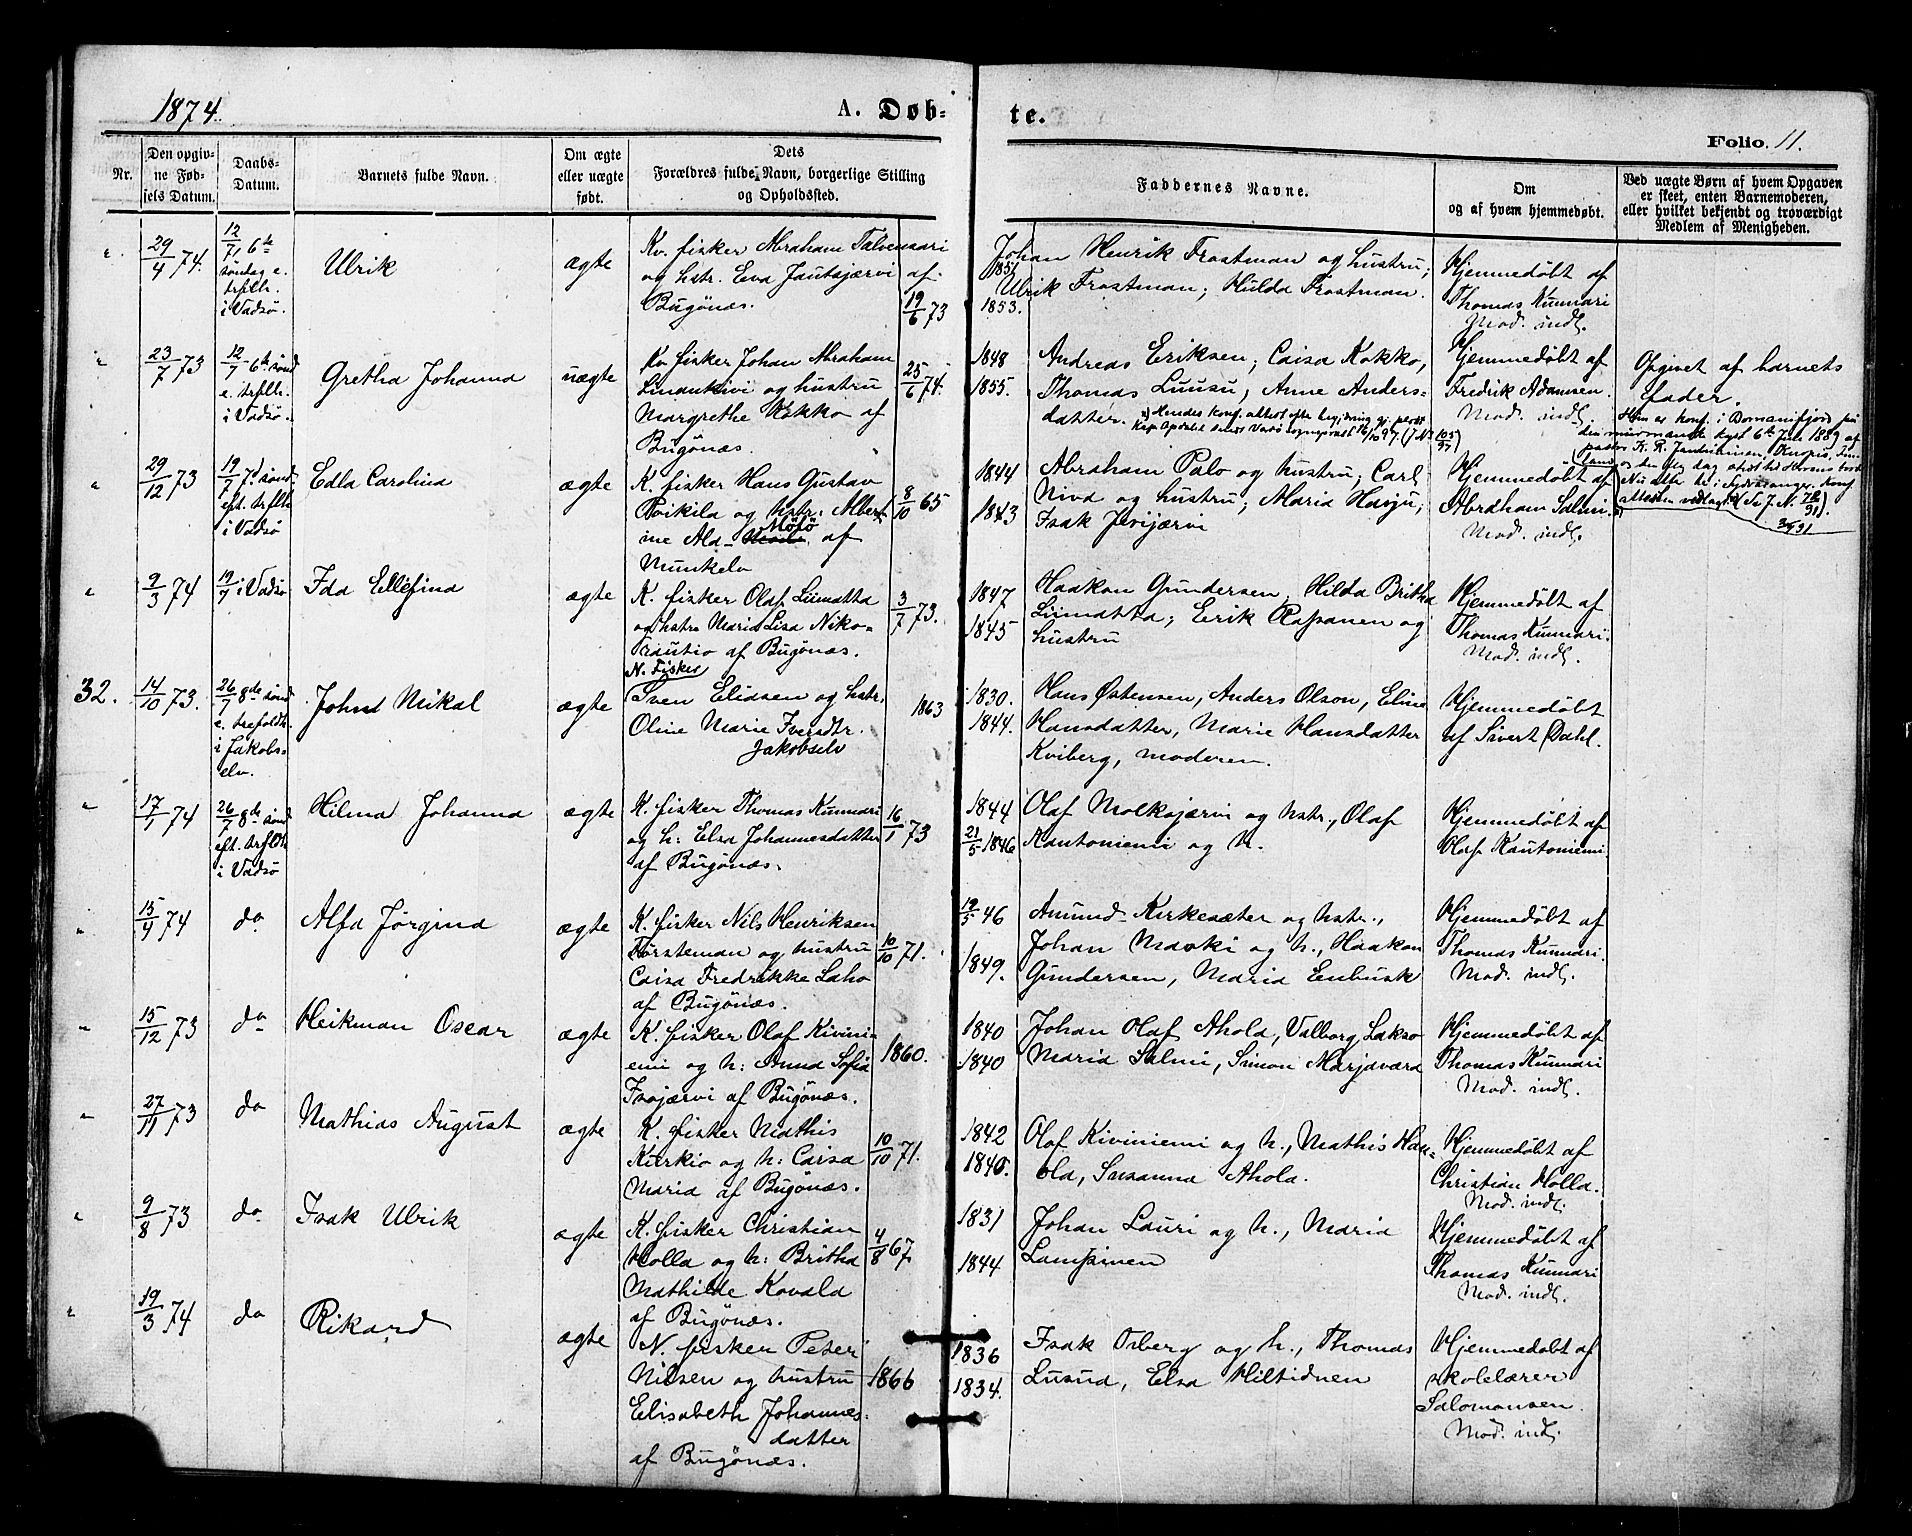 1874.
A. Døb-
te.
Folio. 11.
Nr.
Den opgiv-
ne Fød-
sels Datum.
Daabs-
Datum.
Barnets fulde Navn.
Om ægte
eller uægte
født.
Dets
Forældres fulde Navn, borgerlige Stilling
og Opholdssted.
Faddernes Navne.
Om
og af hvem hjemmedøbt.
Ved uægte Børn af hvem Opgaven
er skeet, enten Barnemoderen,
eller hvilket bekjendt og troværdigt
Medlem af Menigheden.
"
29/4 74.
12/7, 6te
søndag e.
trflh.
i Vadsø.
Ulrik
ægte
Kv. fisker Abraham Talvensari
og hstr. Eva Jautajærvi af
Bugönæs.
19/6 73
1851
1853.
Johan Henrik Frostman og hustru;
Ulrik Frostman; Hulda Frostman.
Hjemmedøbt af
Thomas Kunnari
Mod. indl.
"
23/7 73
12/7 6te sönd
e. trfllh.
i Vadsø.
Gretha Johanna
uægte
Kv. fisker Johan Abraham
Linankivi og hustru
Margrethe Kokko af
Bugönæs.
25/6 74.
1848
1855.
Andreas Eriksen; Caisa Kokko,
Thomas Luusu, Anne Anders-
datter.
Hjemmedøbt af
Fredrik Adamsen.
Mod. indl.
Opgivet af barnets
fader.
"
29/12 73
19/7 7d sönd
eft. trflh
i Vadsø
Edla Carolina
ægte
K. fisker Hans Gustav
Poikila og hstr: Albert
ine Ala- Mölö af
Munkelv
8/10 65
1844
1843
Abraham Palo og hustru; Carl
Niva og hustru; Maria Harju;
Isak Jevijærvi
Hjemmedøbt af
Abraham Salmi.
Mod. indl.
"
9/3 74
19/7 i Vadsø
Ida Ellefina
ægte
K. fisker Olaf Liimatta
og hstr Maria Lisa Niko-
rautio af Bugönæs.
3/7 73.
1847
1845
Haakon Gundersen, Hilda Britha
Liimatta; Erik Papanen og
hustru
Hjemmedøbt af
Thomas Kunnari.
Mod. indl.
32.
14/10 73.
26/7 8de sönd
e. trefoldh.
i Jakobs-
elv.
Johan Mikal
ægte
N. Fisker
Sven Eliasen og hstr.
Oline Marie Iversdtr.
Jakobselv
1863
1830.
1844.
Hans Østensen, Anders Olson, Eline
Hansdatter, Marie Hansdatter
Kviberg, moderen.
Hjemmedøbt
af Sivert Dahl.
"
17/1 74
26/7 8de sönd
eft. trfldh
i Vadsø
Hilma Johanna
ægte
K. fisker Thomas Kunnari
og h: Elsa Johannesdatter
af Bugönæs.
16/1 73
1844
21/5 1846
Olaf Molkojærvi og hstr., Olaf
Kantoniemi og h.
Hjemmedøbt af
Olaf Kantoniemi.
"
15/4 74
do
Alfa Jørgina
ægte
K. fisker Nils Henriksen
Törsteman og hustru
Caisa Fredrikke Laho
af Bugönæs.
10/10 71.
19/5 46
1849.
Amund Kirkesæter og hstr.,
Johan Mavki og h., Haakon
Gundersen, Maria Enbusk
Hjemmedøbt af
Thomas Kunnari.
Mod. indl.
"
15/12 73
do
Heikman Oscar
ægte
K. fisker Olaf Kivini-
emi og h: Anna Sofia
Isojærvi af Bugönæs.
1860.
1840
1840
Johan Olaf Ahola, Valborg Lakso
Maria Salmi, Simon Marjavara
Hjemmedøbt af
Thomas Kunnari
Mod. indl.
"
27/11 73
do
Mathias August
ægte
K. fisker Mathis
Kurkio og h: Caisa
Maria af Bugönæs.
10/10 71.
1842
1840.
Olaf Kiviniemi og h., Mathis Han-
ola, Susanna Ahola.
Hjemmedøbt af
Christian Holla.
Mod. indl.
"
9/8 73
do
Isak Ulrik
ægte
K. fisker Christian
Holla og h: Britha
Mathilde Kovala
af Bugönæs.
4/8 67
1831
1844
Johan Lauri og h., Maria
Hjemmedøbt af
Thomas Kunnari
Mod. indl.
"
19/3 74
do
Rikard
ægte
N. fisker Peter
Nilsen og hustru
Elisabeth Johannes-
datter
af Bugönæs.
1866
1836
1834.
Isak Orberg og h., Thomas
Lusua, Elsa Hiltidnen
Hjemmedøbt af
skolelærer
Salomonsen.
Mod. indl.